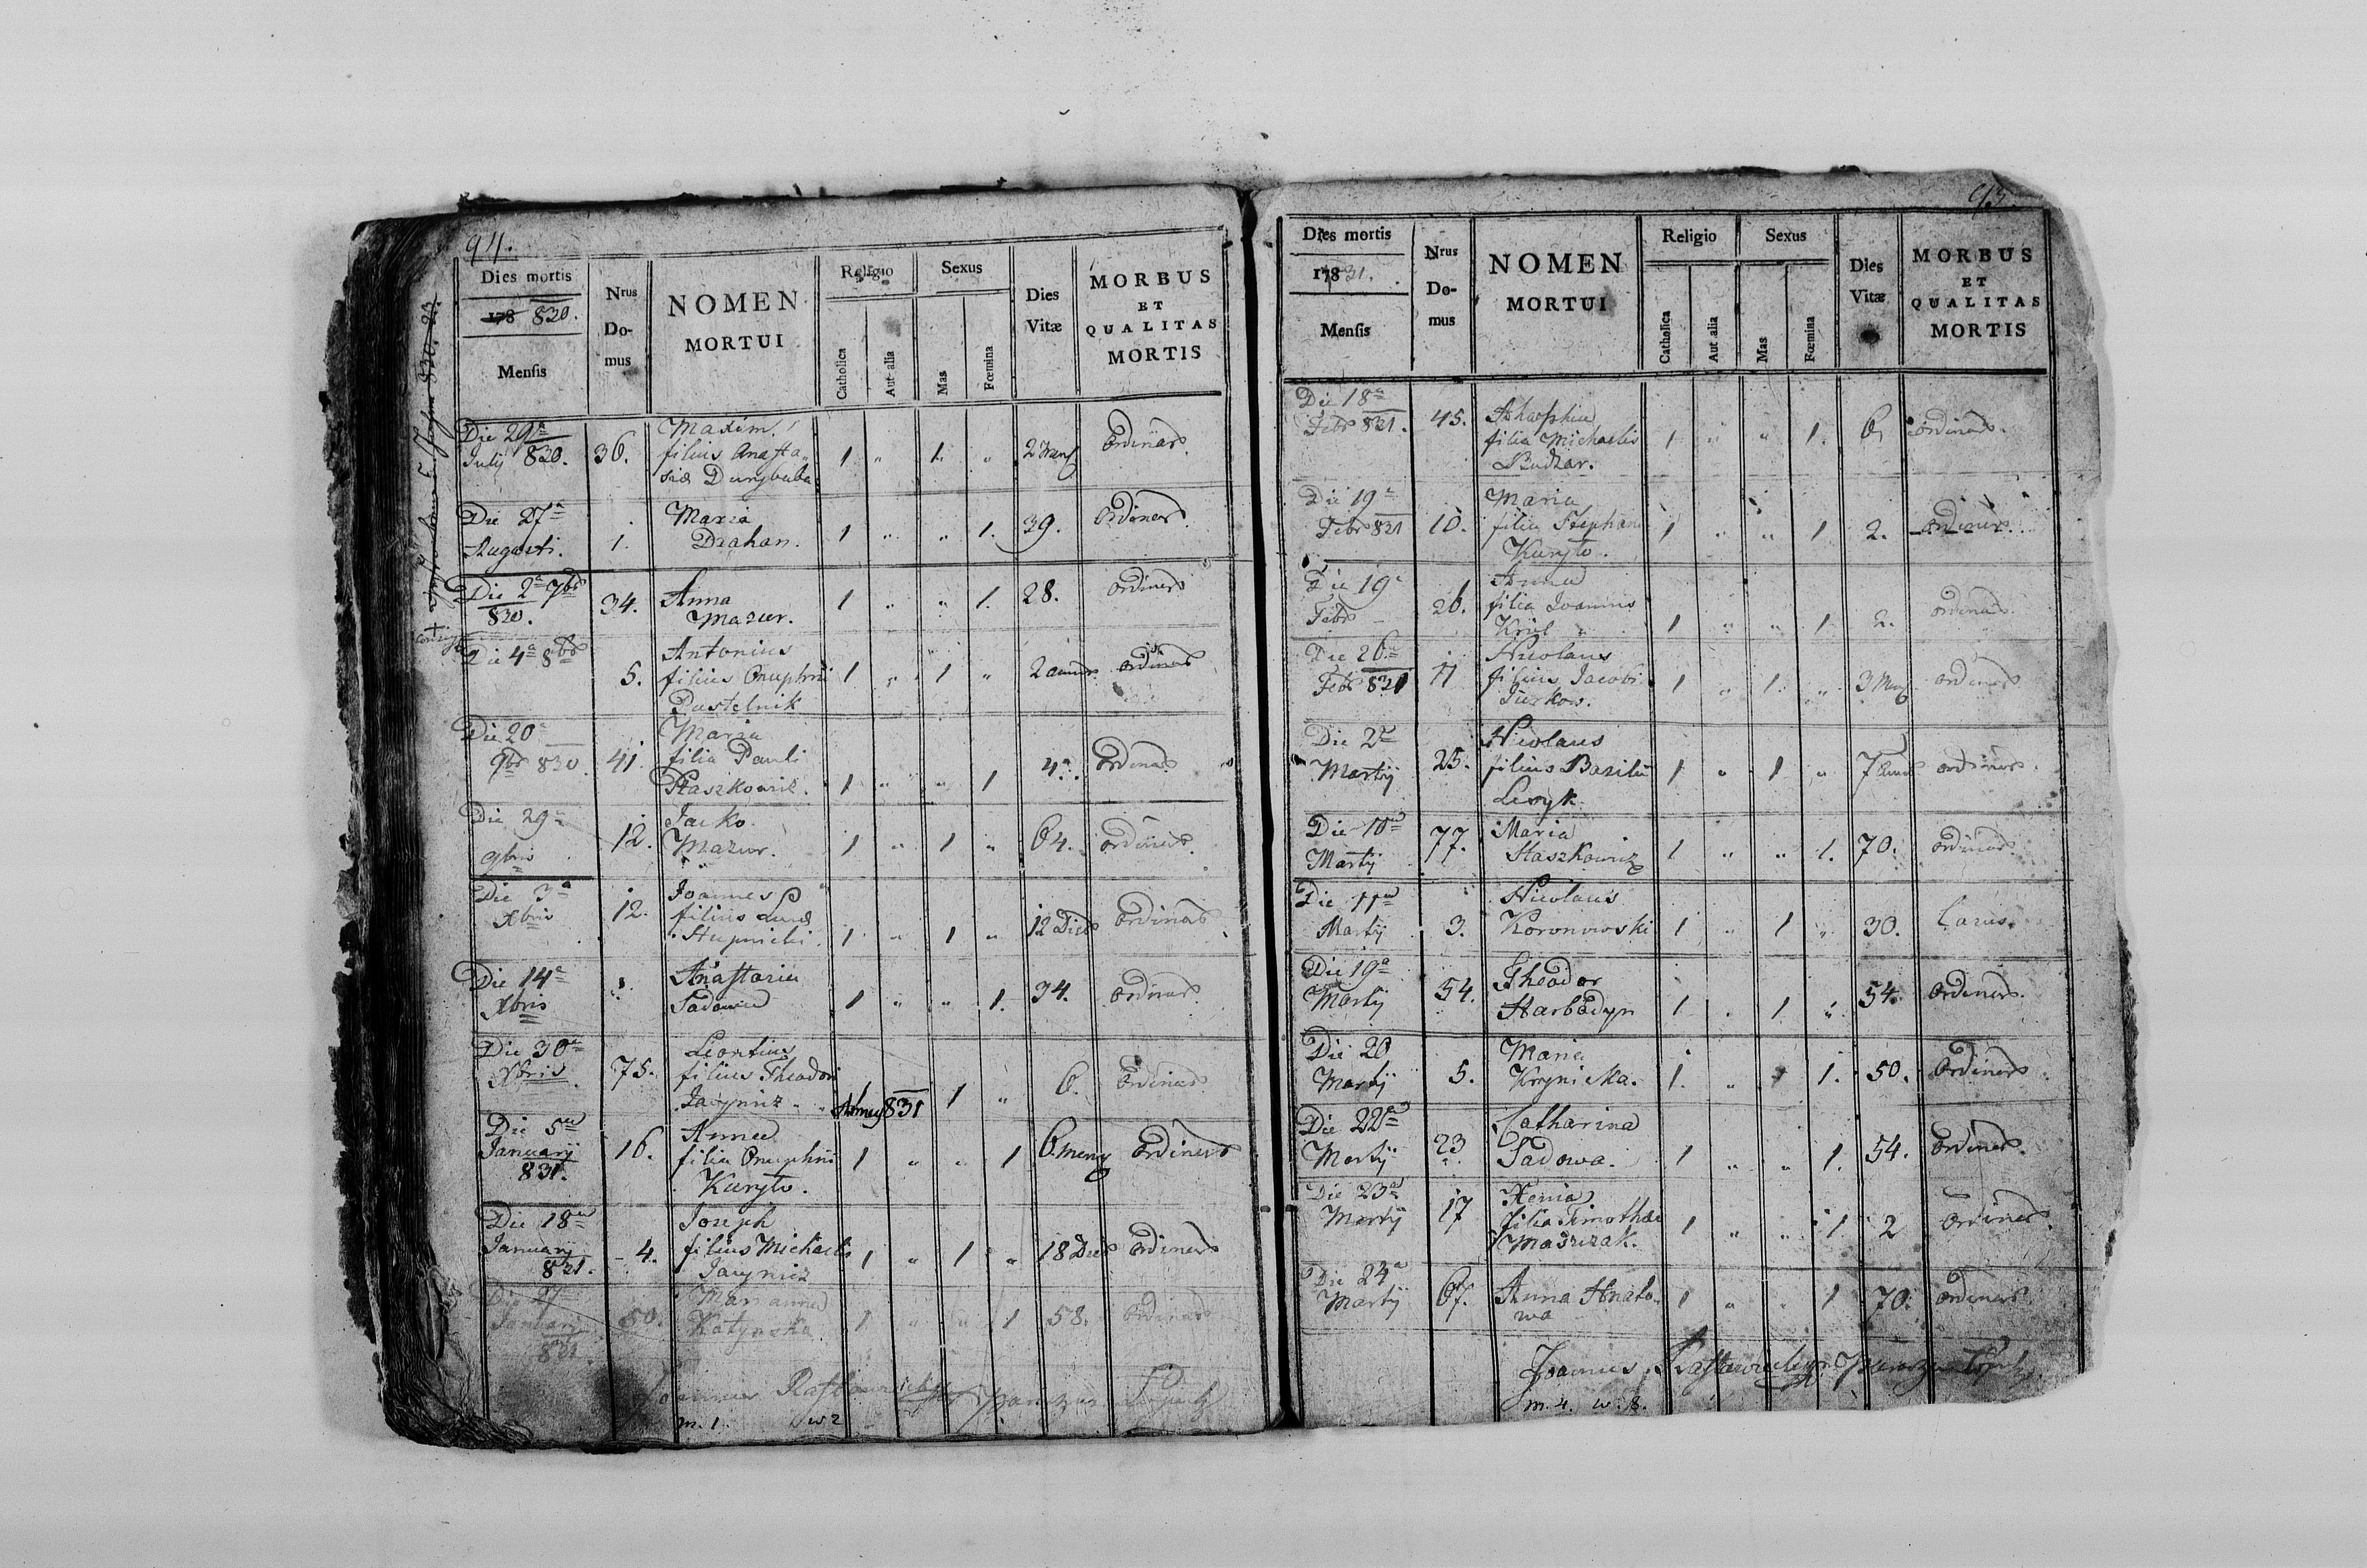 94.
Dies mortis
178 820.
Mensis
Nrus
Do-
mus
NOMEN
MORTUI
Religio
Catholica
Aut alia
Sexus
Mas
Fœmina
Dies
Vitæ
MORBUS
ET
QUALITAS
MORTIS
Die 29a
July 830. 36. Maxim
filius Anasta„
siæ 1 „ 1. „ 2 ordinar.
Die 27a
Augusti. 1. Maria
Drahan. 1 „ „ 1. 39. Ordiner.
Die 2a 7br
830. 34. Anna
Mazur. 1 „ „ 1. 28. ordiner
Die 4a 8br
5. Antonius
filius Onuphrii
Pustelnik 1 „ 1 „ 2 ordinar
Die 20a
9br 830. 41. Maria
filia Pauli
1 „ „ 1 4. Ordinar
Die 29a
9bris 12. Jacko
Mazur. 1 „ 1 „ 64. ordiner.
Die 3a
Xbris 12. Joannes
filius Lucæ
Stupnicki. 1 „ 1 „ 12 Dies ordinar
Die 14a
Xbris Anastasia
Sadowa 1 „ „ 1. 34. ordinar.
Die 30a
Xbris 75. Leontius
filius Theodori
Jacynicz 1 „ 6. Ordinar
831
Die 5a
Januarij
831. 16. Anna
filia Onuphrii
Kuryło. 1 „ „ 1 6 meng ordiner
Die 18a
Januarij
831. 4. Joseph
filius Michaelis
Jacynicz 1 „ 1 „ 18 Dies ordiner
Die 27
Januarij
831. 50. Marianna
Katynska. 1 „ „ 1 58. Ordinar
m. 1. w 2
95.
Dies mortis
178 31.
Mensis
Nrus
Do-
mus
NOMEN
MORTUI
Religio
Catholica
Aut alia
Sexus
Mas
Fœmina
Dies
Vitæ
MORBUS
ET
QUALITAS
MORTIS
Die 18a
Febr 831. 45.
filia Michaelis
Budzar. 1 „ „ 1. 6 ordinar.
Die 19a
Febr 831 10. Maria
filia Stephani
Kuryło. 1 „ „ 1 2. ordiner.
Die 19a
Febr 26. Anna
filia Joannis
Król 1 „ „ 1 2. ordinar.
Die 26a
Febr 831 11 Nicolaus
filius Jacobi
Juzkow. 1 „ 1. „ 3 Meng ordinar
Die 2a
Martij 25. Nicolaus
filius Basilii
Lesyk. 1 „ 1 „ 7 ordiner.
Die 10a
Martij 77. Maria
Staszkowicz 1 „ „ 1. 70. ordinar.
Die 11a
Martij 3. Nicolaus
Koronowski 1 „ 1 „ 30. Casus.
Die 19a
Martij 54. Theodor
Harbadyn 1 „ 1 „ 54. ordiner.
Die 20
Martij 5. Maria
Krynicka. 1. „ 1. 50. Ordiner
Die 22a
Martij 23 Catharina
Sadowa. 1 „ „ 1. 54. ordiner.
Die 23a
Martij 17 Xenia
filia Timothæi
Maszczak. 1 „ „ 1 2 ordiner.
Die 24a
Martij 67. Anna Hnato„
wa 1 „ „ 1 70. ordiner.
Joannes
m. 4. w. 8.